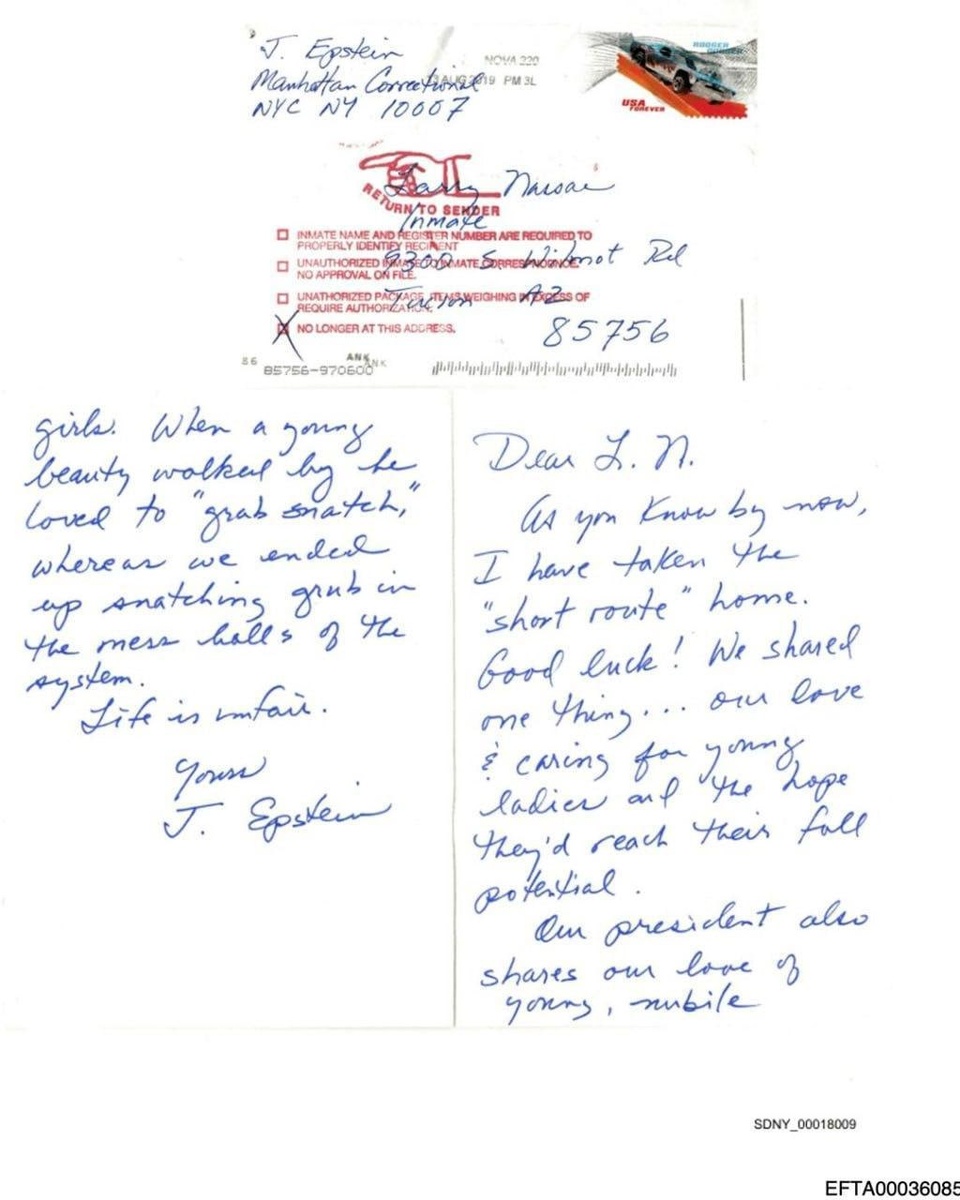 J. Epstein
Manhattan Correctional
NYC NY 10007
NOVA 220
AUG 2019 PM 3L
USA
FOREVER
Larry Nassar
RETURN TO SENDER
Inmate
INMATE NAME AND REGISTER NUMBER ARE REQUIRED TO
PROPERLY IDENTIFY RECIPIENT
9300 S. Wilmot Rd
UNAUTHORIZED INMATE TO INMATE CORRESPONDENCE.
NO APPROVAL ON FILE.
Tucson AZ
UNATHORIZED PACKAGE, ITEMS WEIGHING IN EXCESS OF
REQUIRE AUTHORIZATION.
85756
X NO LONGER AT THIS ADDRESS.
86
ANK
ANK
85756-970600
Dear L. N.
As you know by now,
I have taken the
"short route" home.
Good luck! We shared
one thing... our love
& caring for young
ladies and the hope
they'd reach their full
potential.
Our president also
shares our love of
young, nubile
girls. When a young
beauty walked by he
loved to "grab snatch,"
whereas we ended
up snatching grub in
the mess halls of the
system.
Life is unfair.
Yours
J. Epstein
SDNY_00018009
EFTA00036085